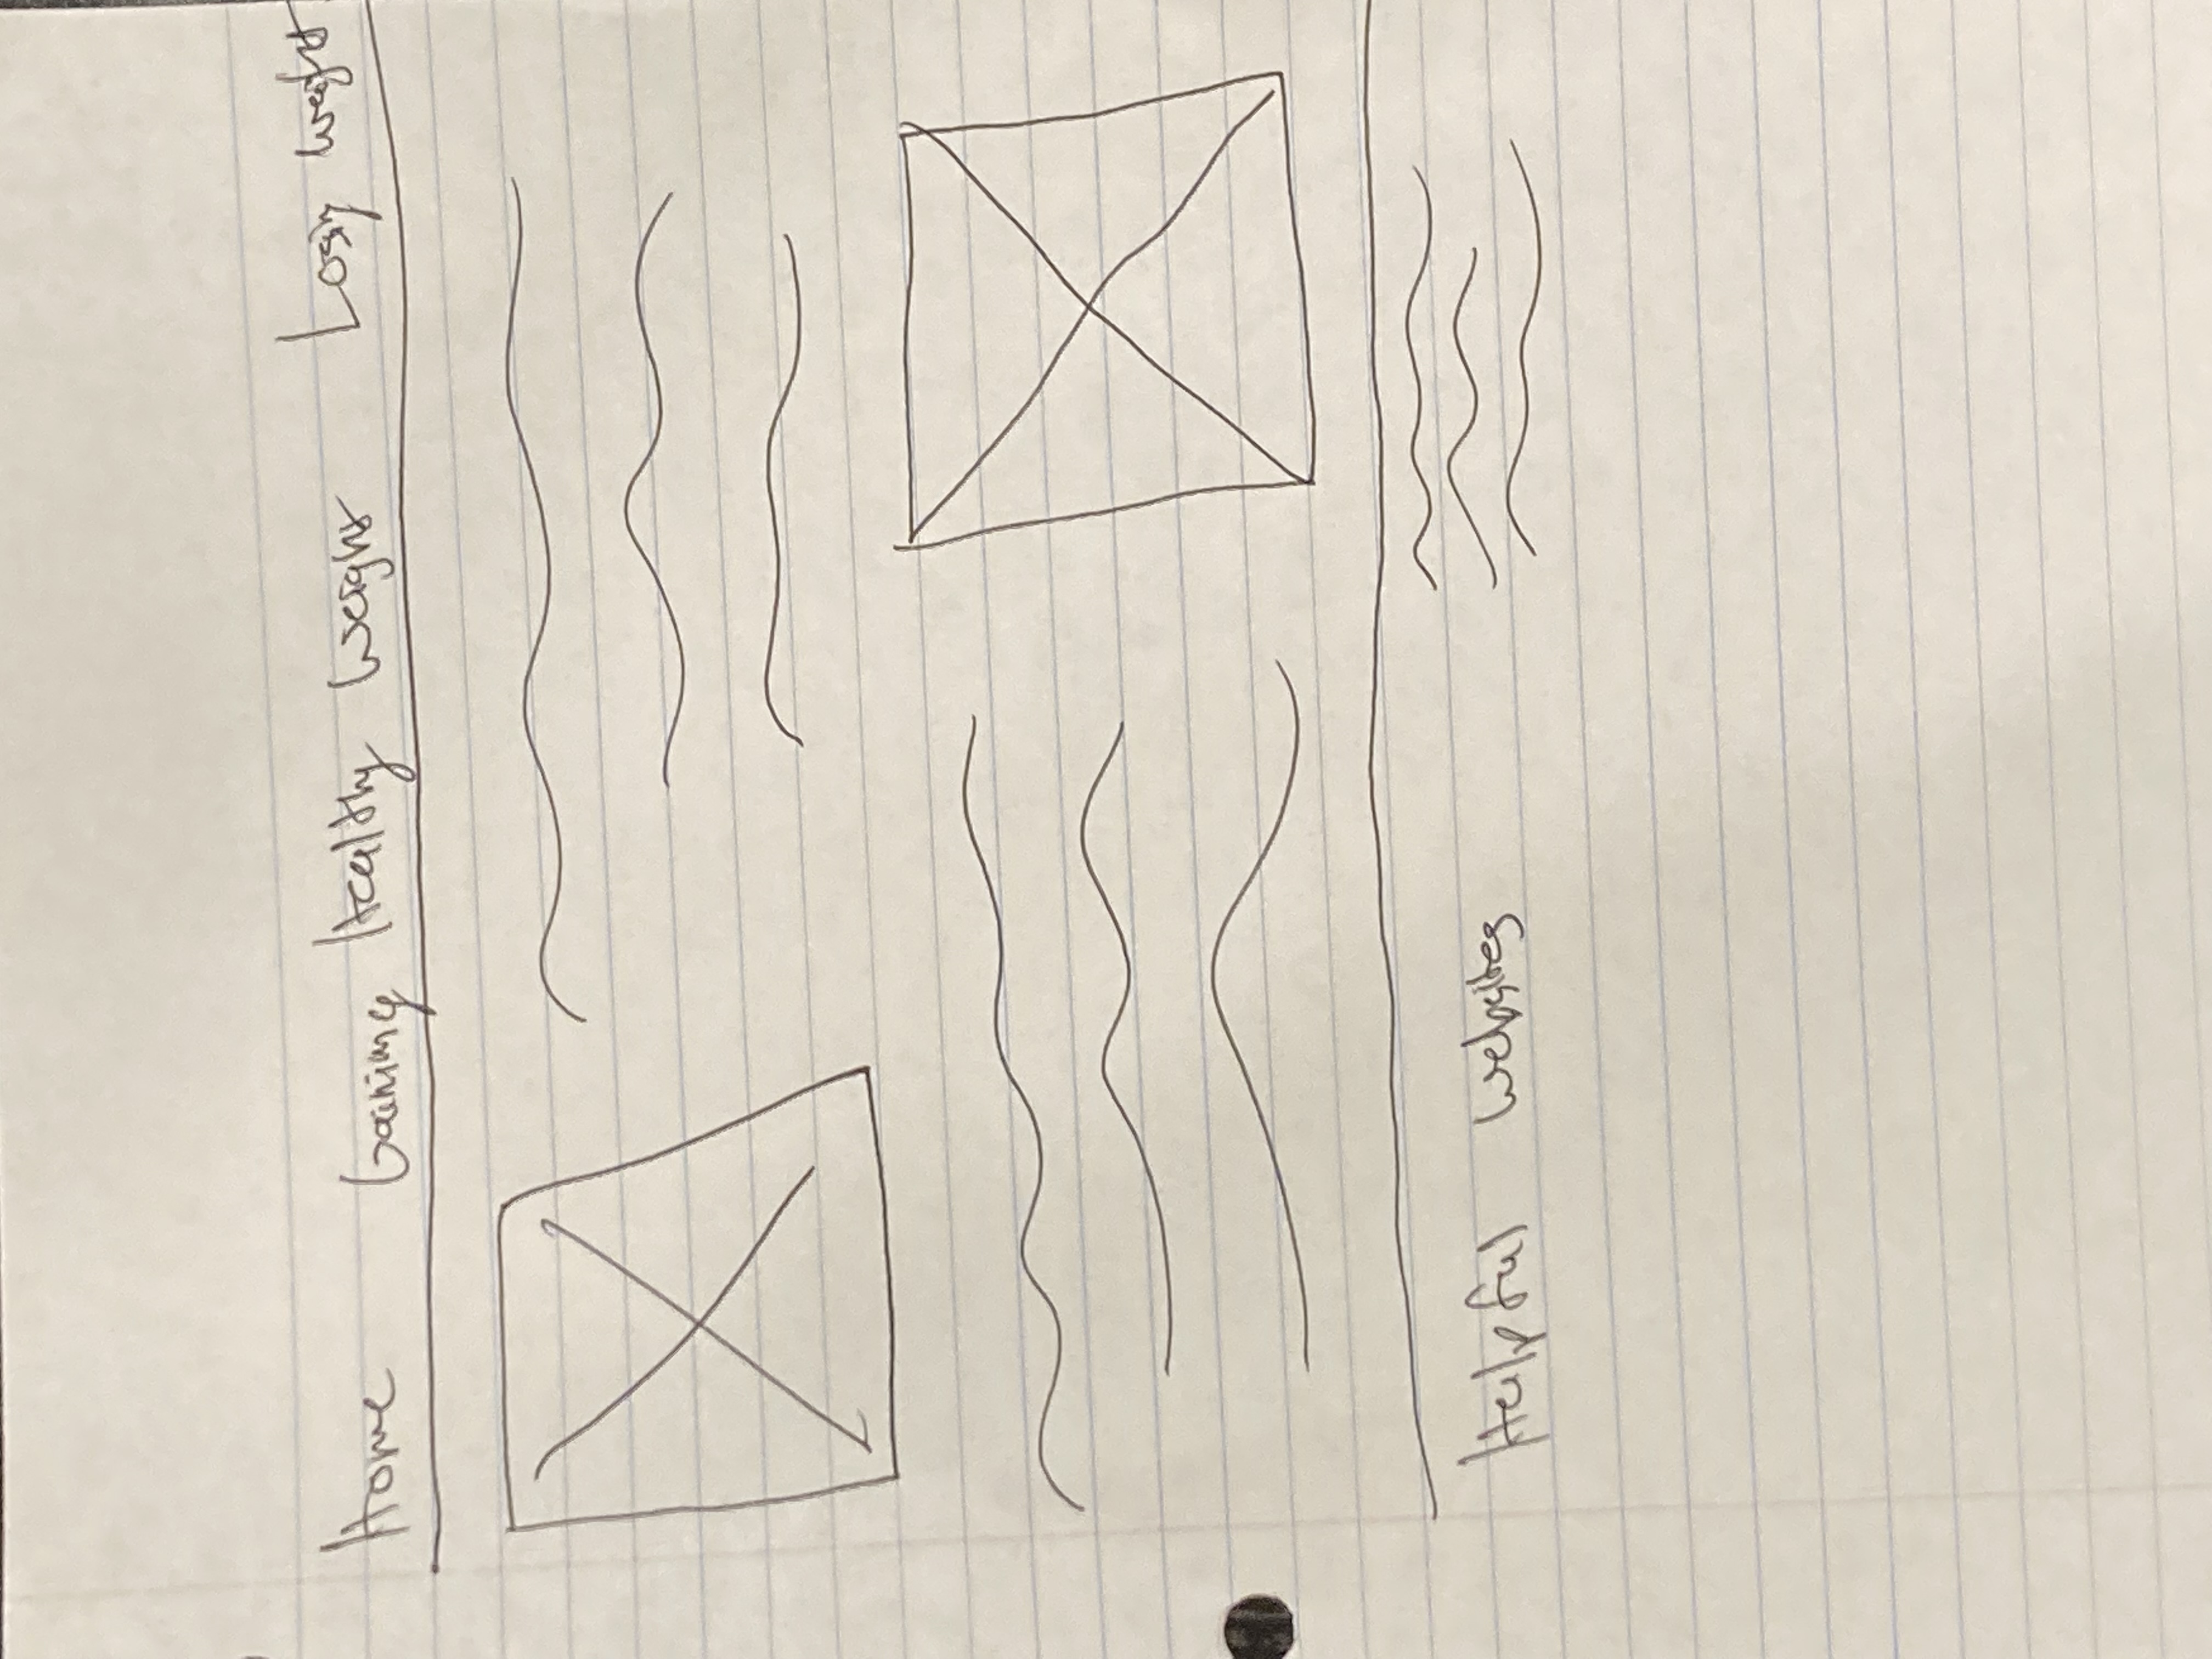 Home Gaining Healthy Weight Losing Weight
Helpful Websites